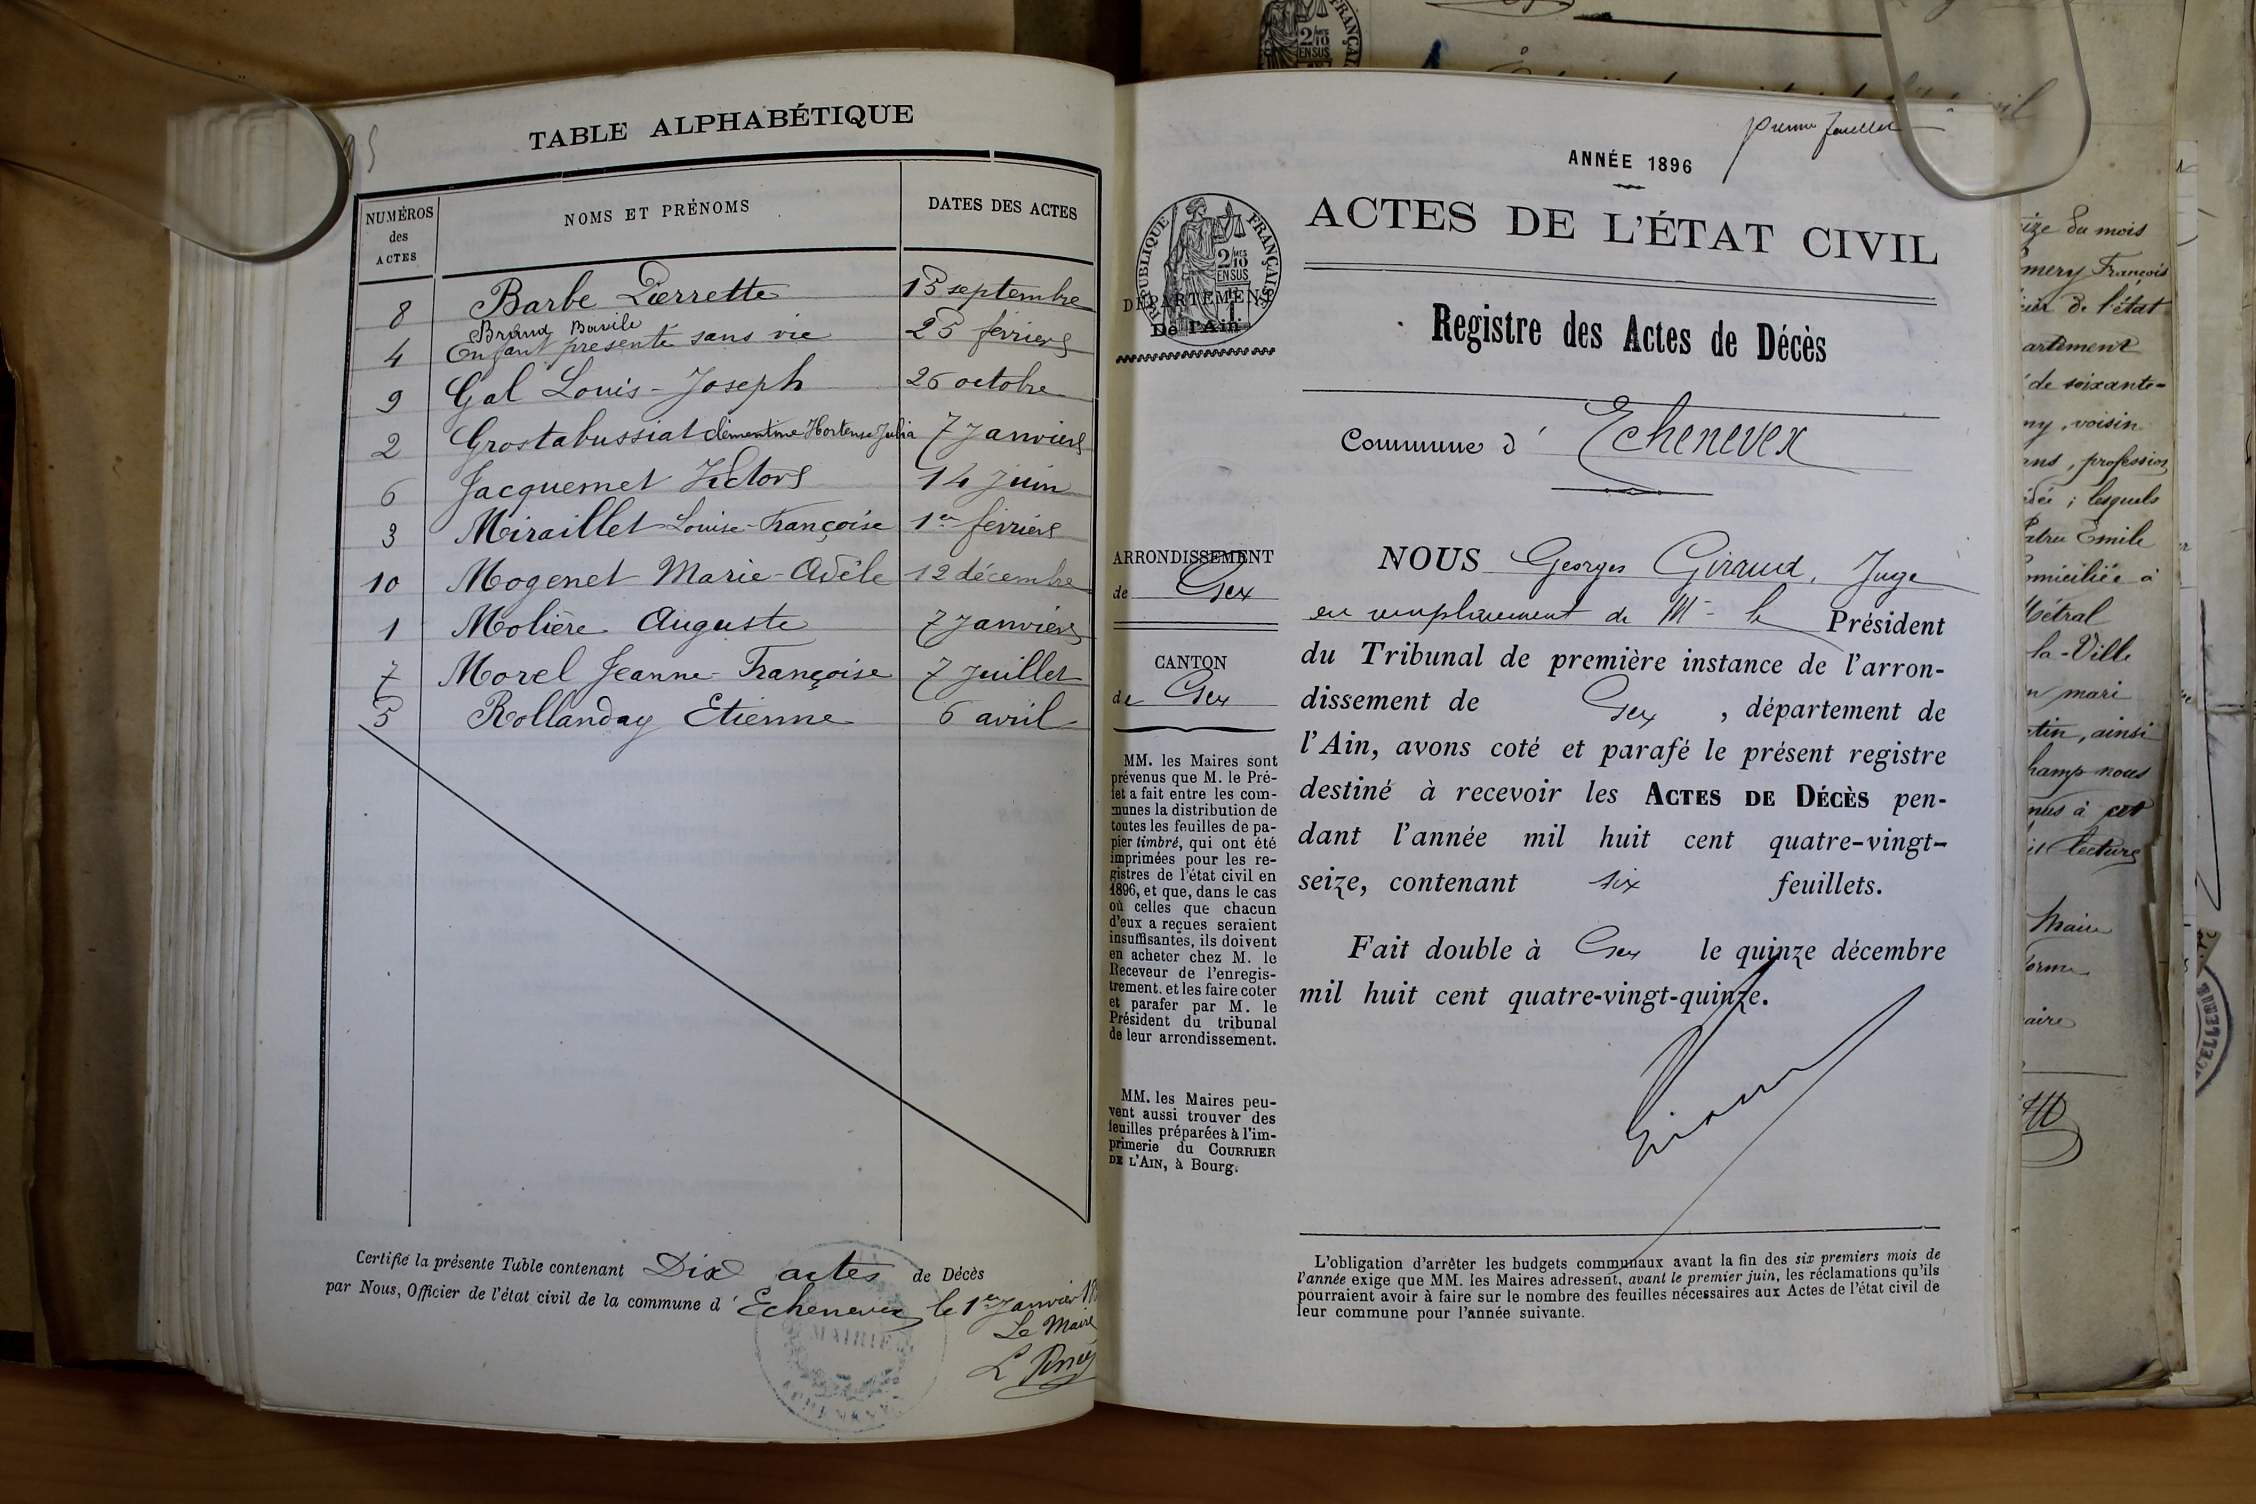 95
TABLE ALPHABÉTIQUE
NUMÉROS des ACTES
NOMS ET PRÉNOMS
DATES DES ACTES
8 Barbe Pierrette 15 septembre
Brand Basile
4 Enfant présenté sans vie 25 février
9 Gal Louis-Joseph 26 octobre
2 Grostabussiat Clémentine Hortense Julia 7 Janvier
6 Jacquemet Victor 14 Juin
3 Miraillet Louise-Françoise 1er février
10 Mogenet Marie-Adèle 12 décembre
1 Molière Auguste 7 Janvier
7 Morel Jeanne-Françoise 7 Juillet
5 Rollanday Etienne 6 avril
Certifié la présente Table contenant Dix actes de Décès
par Nous, Officier de l'état civil de la commune d' Echenevex le 1er Janvier 18
Le Maire
MAIRIE
premier feuillet
ANNÉE 1896
ACTES DE L'ÉTAT CIVIL
RÉPUBLIQUE FRANÇAISE
2/10 EN SUS
DÉPARTEMENT
De l'Ain
Registre des Actes de Décès
Commune d' Echenevex
ARRONDISSEMENT
de Gex
CANTON
de Gex
MM. les Maires sont
prévenus que M. le Pré-
fet a fait entre les com-
munes la distribution de
toutes les feuilles de pa-
pier timbré, qui ont été
imprimées pour les re-
gistres de l'état civil en
1896, et que, dans le cas
où celles que chacun
d'eux a reçues seraient
insuffisantes, ils doivent
en acheter chez M. le
Receveur de l'enregis-
trement. et les faire coter
et parafer par M. le
Président du tribunal
de leur arrondissement.
MM. les Maires peu-
vent aussi trouver des
feuilles préparées à l'im-
primerie du COURRIER
DE L'AIN, à Bourg.
NOUS Georges Giraud, Juge
en remplacement de Mr le Président
du Tribunal de première instance de l'arron-
dissement de Gex, département de
l'Ain, avons coté et parafé le présent registre
destiné à recevoir les ACTES DE DÉCÈS pen-
dant l'année mil huit cent quatre-vingt-
seize, contenant six feuillets.
Fait double à Gex le quinze décembre
mil huit cent quatre-vingt-quinze.
Giraud
L'obligation d'arrêter les budgets communaux avant la fin des six premiers mois de
l'année exige que MM. les Maires adressent, avant le premier juin, les réclamations qu'ils
pourraient avoir à faire sur le nombre des feuilles nécessaires aux Actes de l'état civil de
leur commune pour l'année suivante.
du mois
mery François
de l'état
artement
de soixante-
ny, voisin
ans, profession
; lesquels
Emile
omiciliée à
Métral
la-Ville
mari
tin, ainsi
hamp nous
nus à cet
lecture
Maire